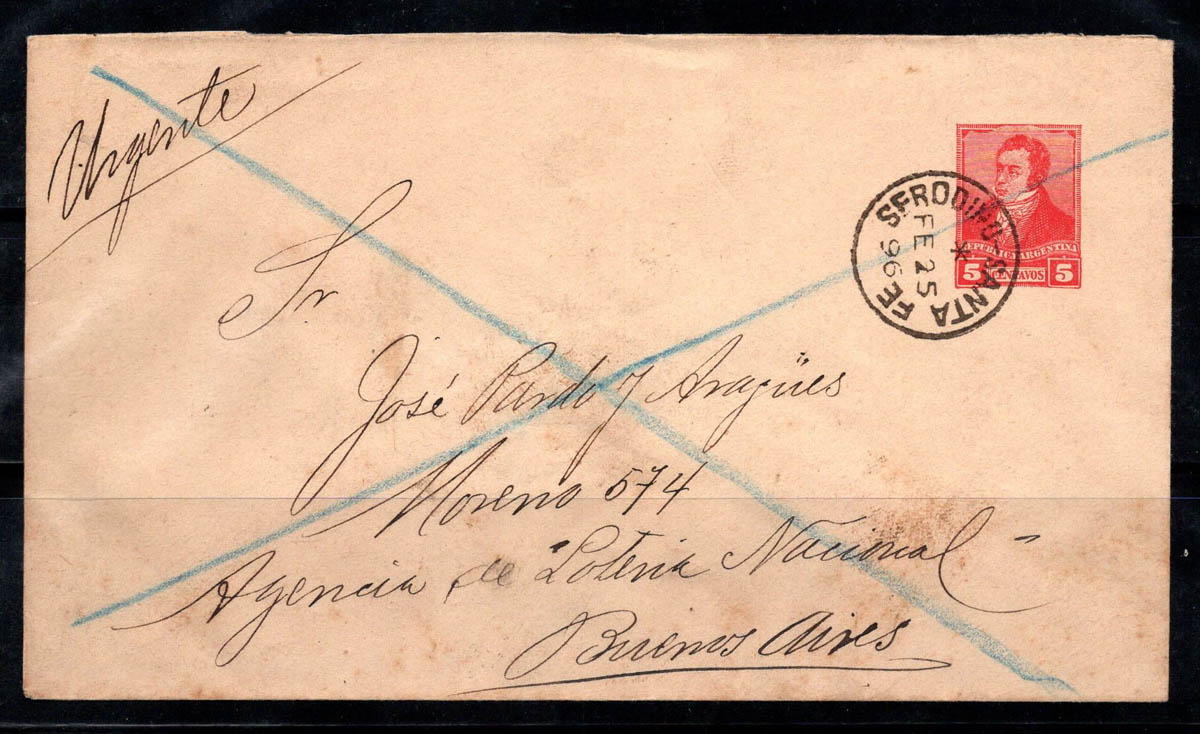 Urgente
Sr
José Pardo y Aragües
Moreno 574
Agencia de "Loteria Nacional"
Buenos Aires
REPUBLICA ARGENTINA
5 CENTAVOS 5
SANTA FE
FE 25
96